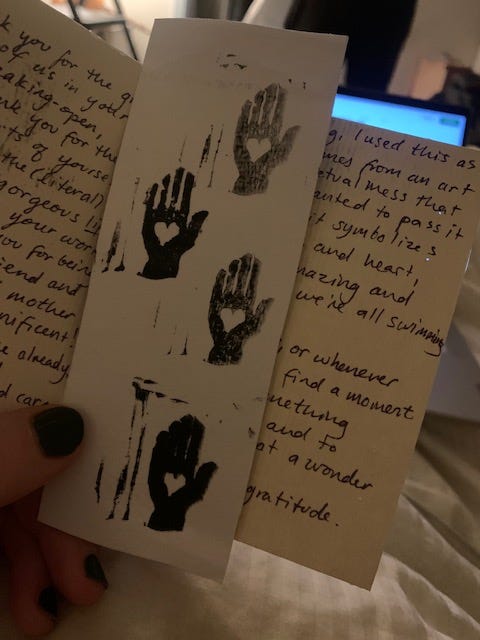 k you for the g
of us in your
eaking-open,
nk you for the
ts of yourse
the (literal)
gorgeous li
your wor
you for bein
iend and
mother
nificent!
e already
d care
g, I used this as
mes from an art
tual mess that
anted to pass it
it symbolizes
and heart,
mazing and
we're all swimming
, or whenever
find a moment
mething
and to
at a wonder
gratitude.